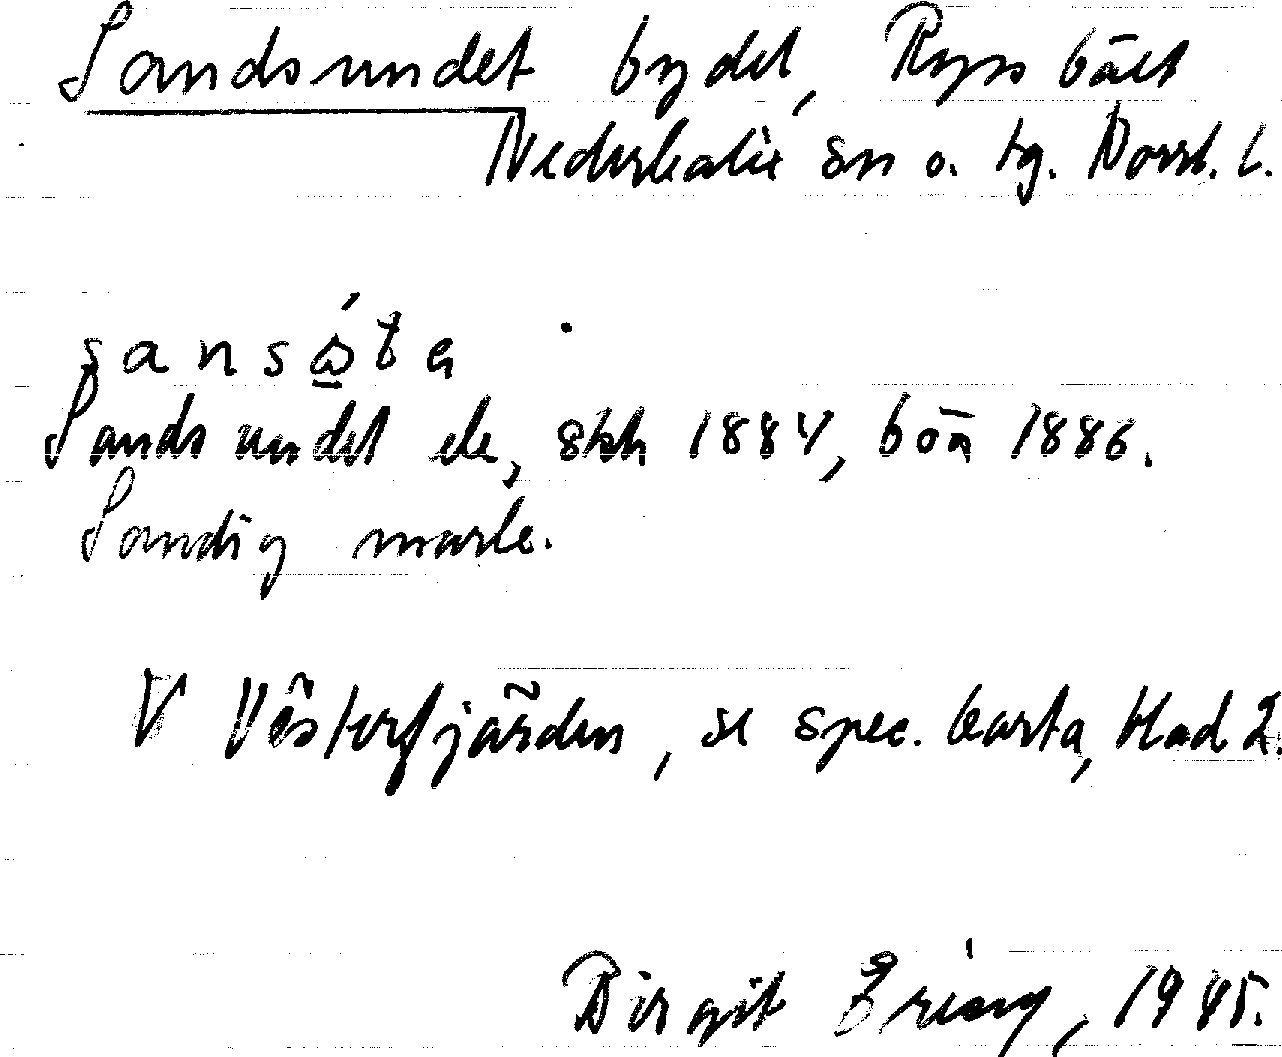 Sandsundet bydel, Ryssbält
Nederkalix sn o. tg. Norrb. l.
sans
Sandsundet ele, skh 1884, boä 1886.
Sandig mark.
V Västerfjärden, se spec. karta, blad 2.
Birgit Ering, 1985.